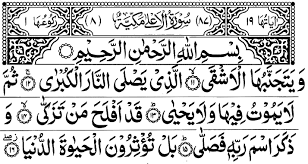 اٰيَاتُهَا ١٩ (٨٧) سُوْرَةُ الْاَعْلٰى مَكِّيَّةٌ (٨) رُكُوْعُهَا ١
بِسْمِ اللّٰهِ الرَّحْمٰنِ الرَّحِيْمِ
وَيَتَجَنَّبُهَا الْاَشْقَى ۝١١ الَّذِيْ يَصْلَى النَّارَ الْكُبْرٰى ۝١٢ ثُمَّ
لَا يَمُوْتُ فِيْهَا وَلَا يَحْيٰى ۝١٣ قَدْ اَفْلَحَ مَنْ تَزَكّٰى ۝١٤ وَ
ذَكَرَ اسْمَ رَبِّهٖ فَصَلّٰى ۝١٥ بَلْ تُؤْثِرُوْنَ الْحَيٰوةَ الدُّنْيَا ۝١٦